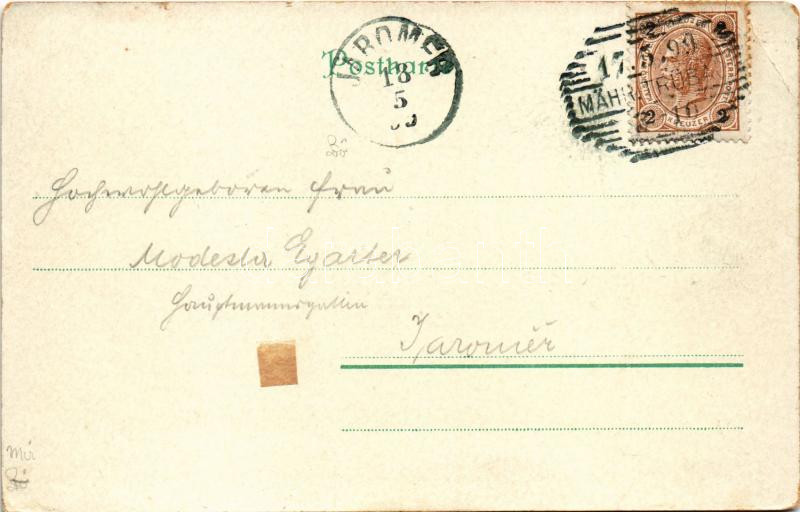 Postkarte
JAROMĚŘ
18
5
17
MÄHR
2
2
2
KREUZER
Hochwohlgeboren Frau
Modesta Egarter
Hauptmannsgattin
Jaroměř
Mir